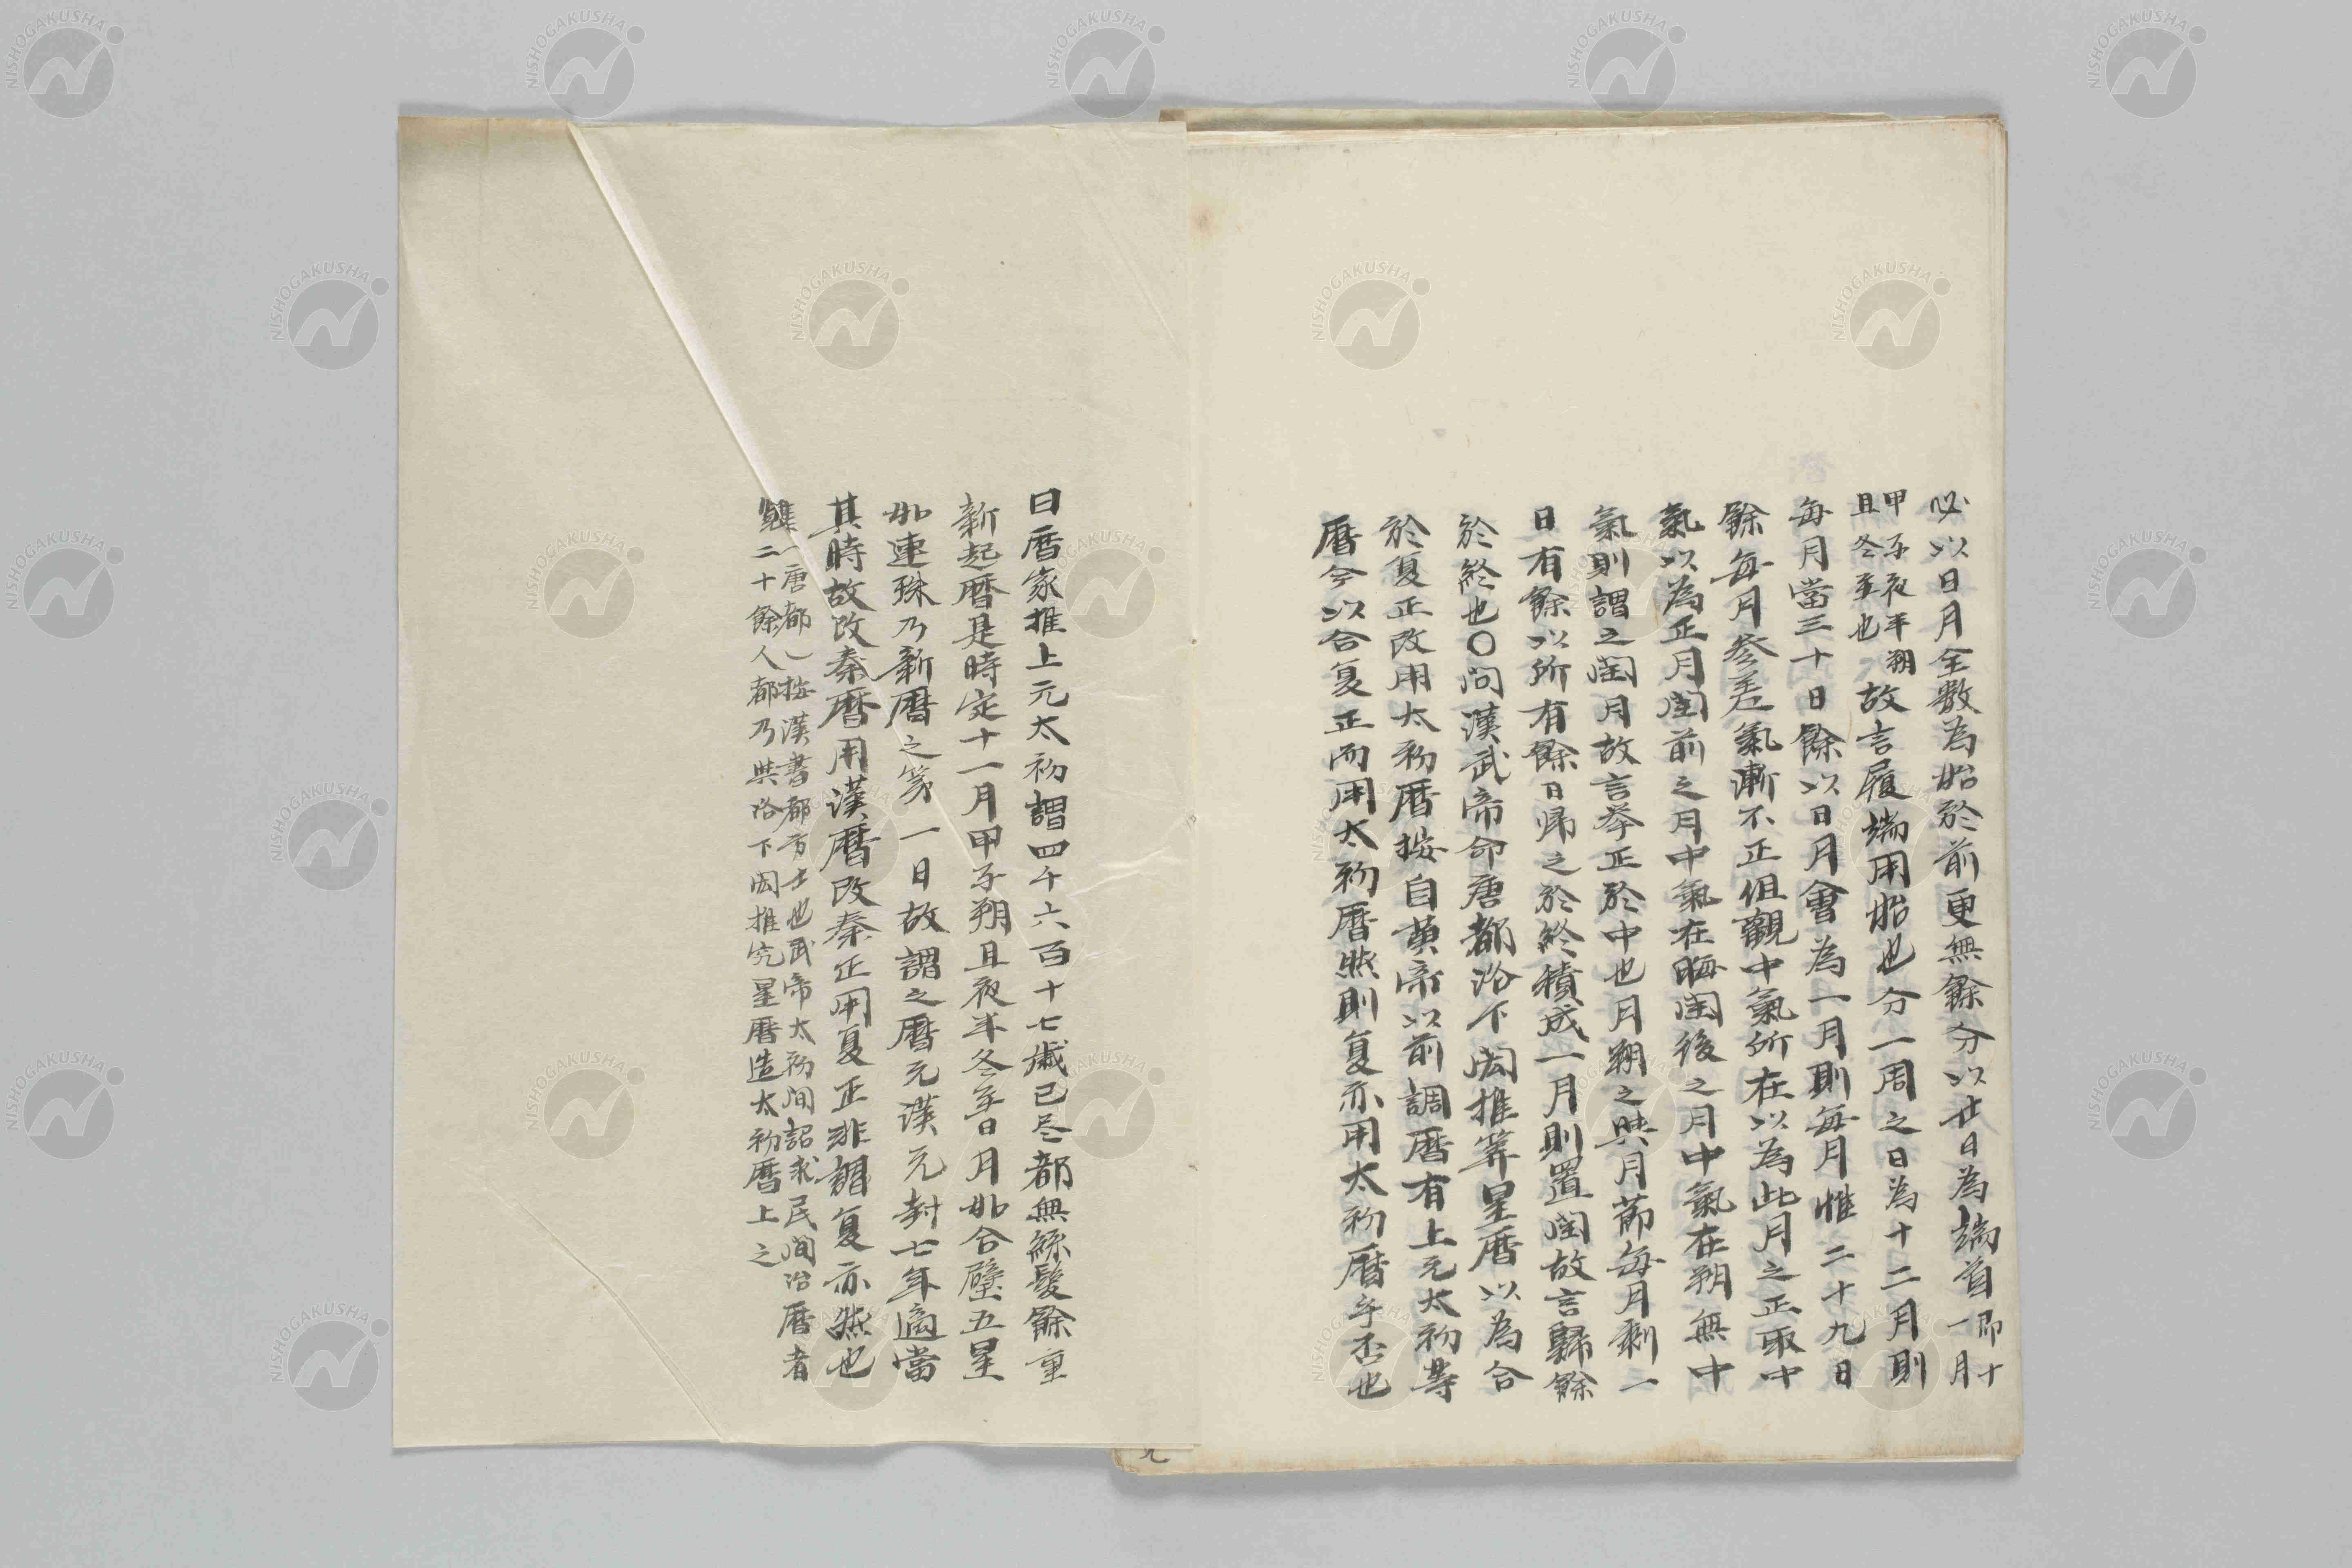 必以日月全数為始於前更無餘分以廿日為端首即十一月
甲子夜半朔且冬至也故言履端用始也分一周之日為十二月則
每月當三十日餘以日月會為一月則每月惟二十九日
餘每月参差氣漸不正但觀中氣所在以為此月之正取中
氣以為正月閏前之月中氣在晦閏後之月中氣在朔無中
氣則謂之閏月故言挙正於中也月朔之與月節每月剩一
日有餘以所有餘日帰之於終積成一月則置閏故言歸餘
於終也〇問漢武帝命唐都洛下閎推筭星暦以為合
於夏正改用太初暦按自黄帝以前調暦有上元太初等
暦今以合夏正而用太初暦然則夏亦用太初暦乎否也
曰暦家推上元太初謂四千六百十七歲已尽都無絲髮餘重
新起暦是時定十一月甲子朔且夜半冬至日月如合璧五星
如連珠乃新暦之第一日故謂之暦元漢元封七年適當
其時故改秦暦用漢暦改秦正用夏正非謂夏亦然也
(唐都)按漢書都方士也武帝太初間詔求民間治暦者
雙二十餘人都乃與洛下閎推究星暦造太初暦上之
NISHOGAKUSHA